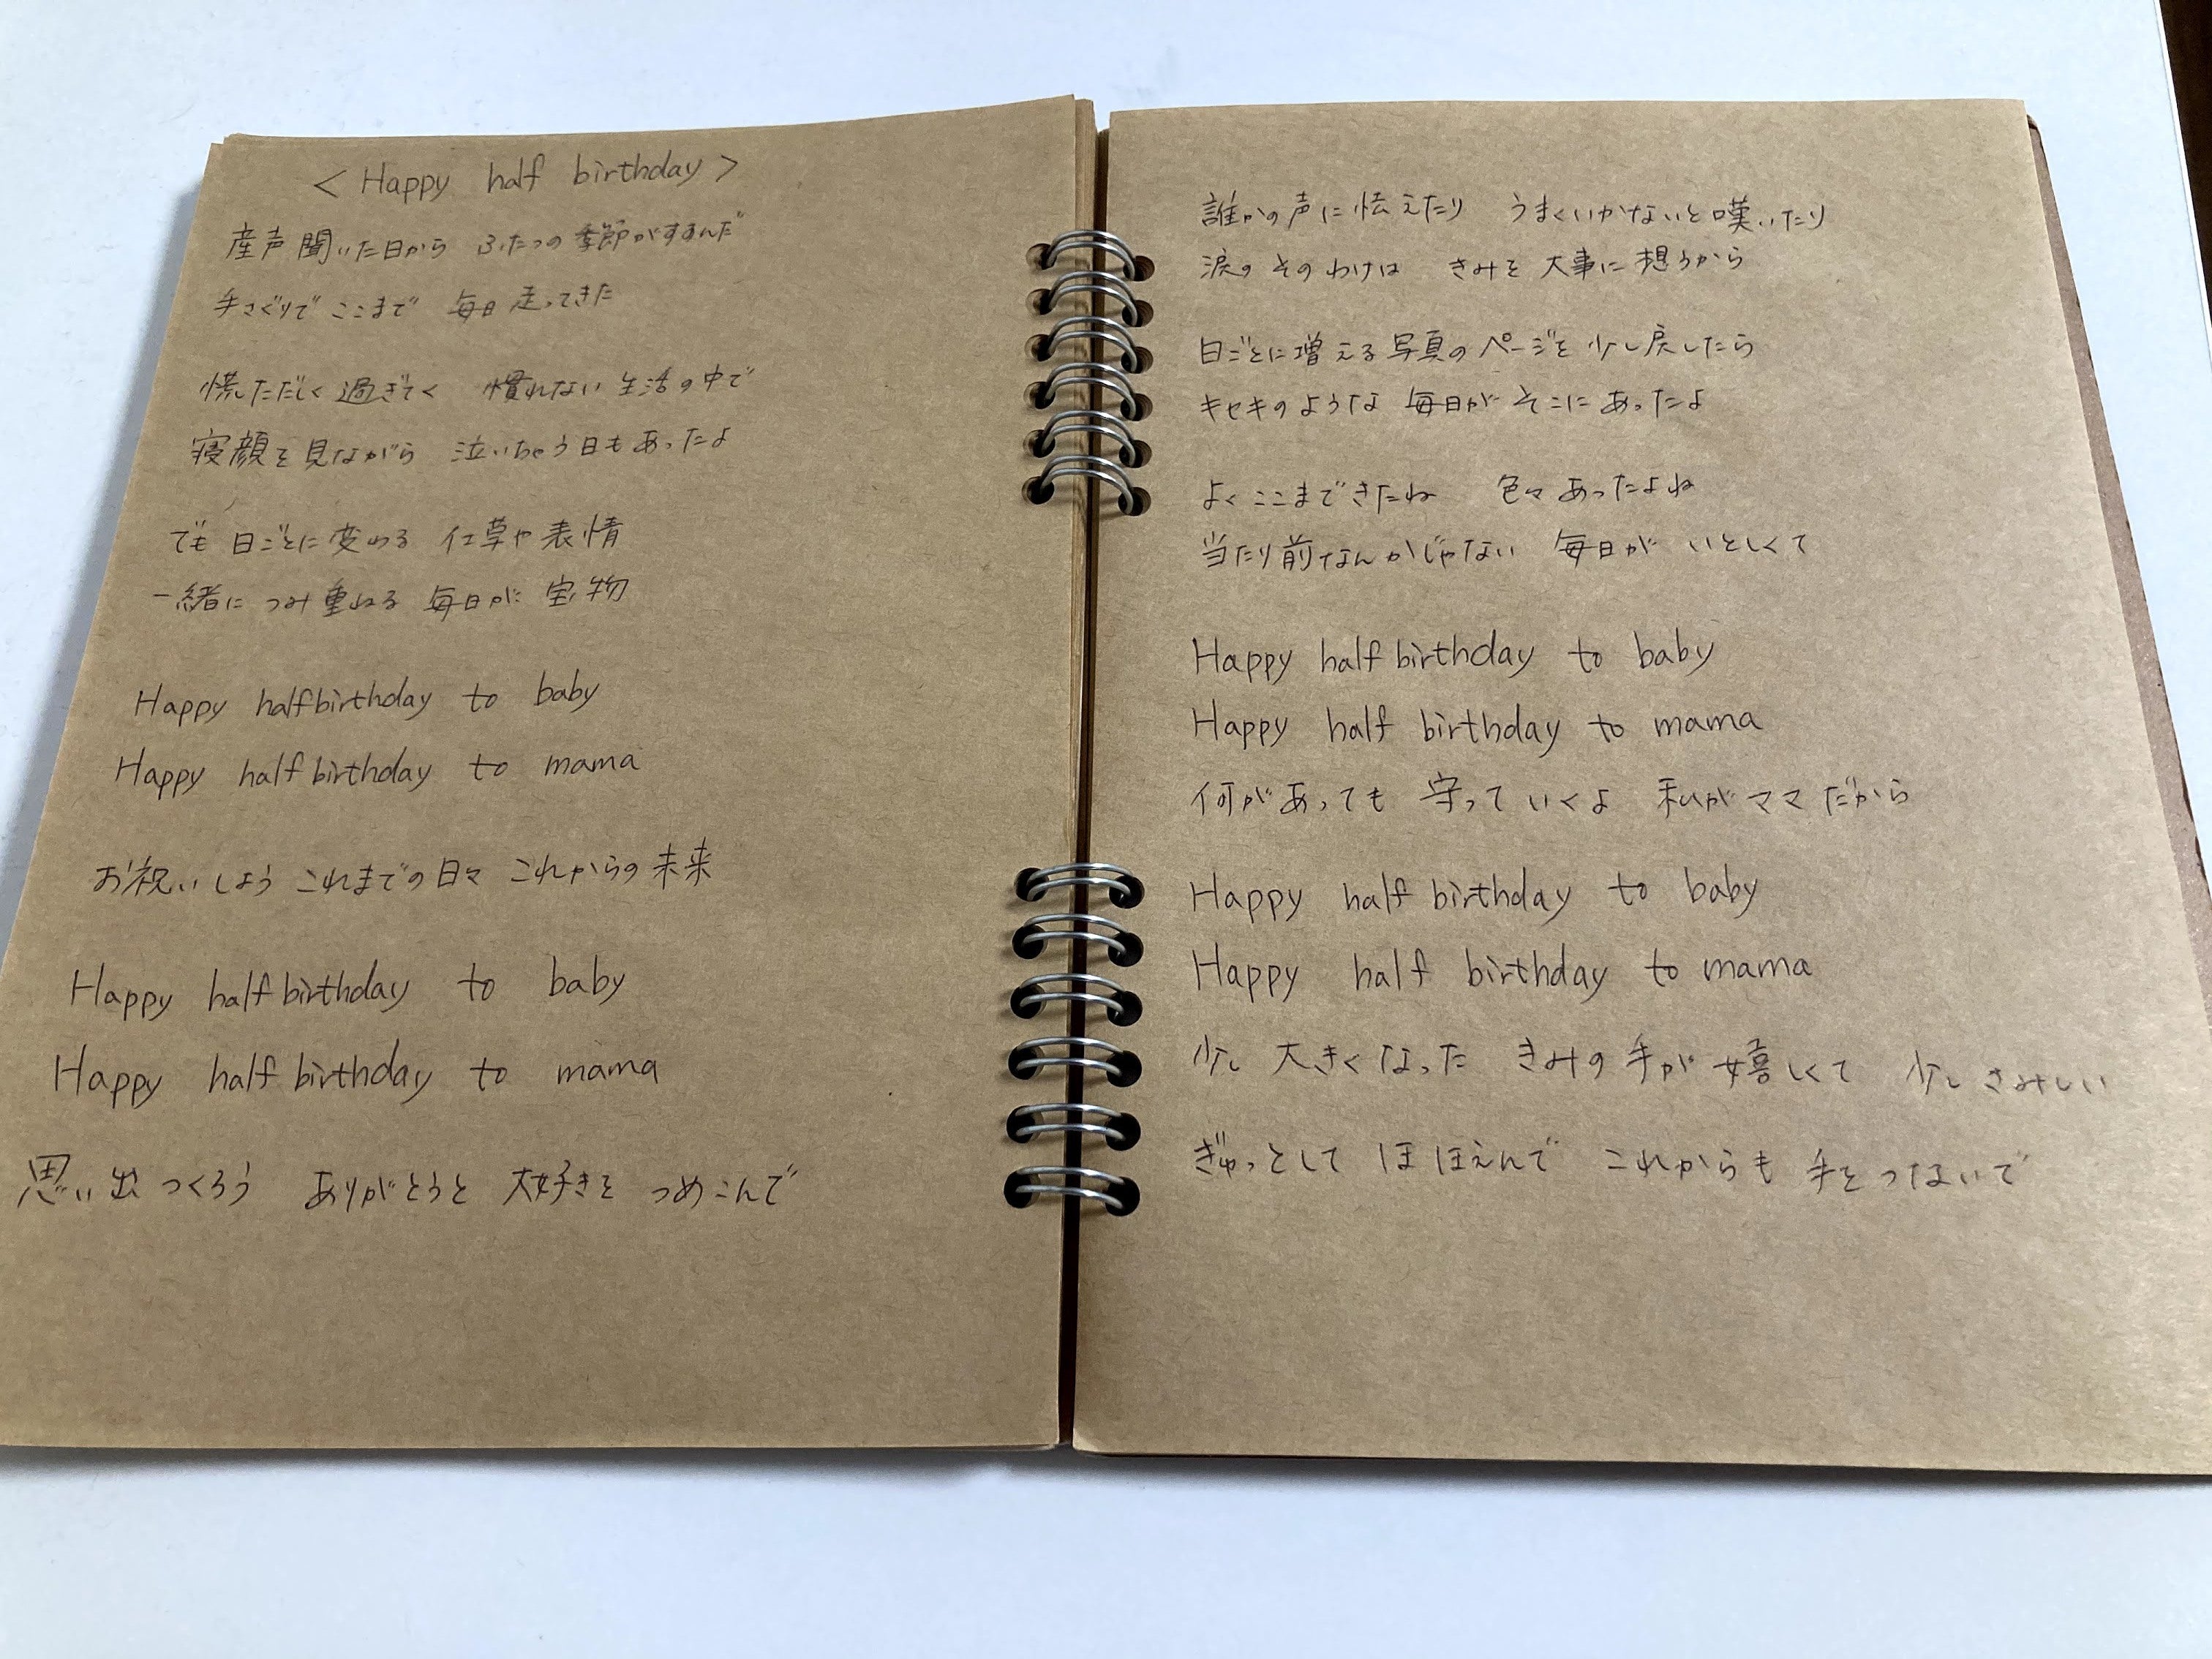 < Happy half birthday >
産声聞いた日から ふたつの季節がすすんだ
手さぐりで ここまで 毎日 走ってきた
慌ただしく 過ぎてく 慣れない 生活の中で
寝顔を見ながら 泣いちゃう日もあったよ
でも 日ごとに変わる 仕草や表情
一緒に つみ重ねる 毎日が 宝物
Happy halfbirthday to baby
Happy half birthday to mama
お祝いしよう これまでの日々 これからの未来
Happy half birthday to baby
Happy half birthday to mama
思い出つくろう ありがとうと 大好きを つめこんで
誰かの声に怯えたり うまくいかないと嘆いたり
涙の そのわけは きみを 大事に想うから
日ごとに増える写真のページを少し戻したら
キセキのような 毎日が そこに あったよ
よくここまできたね 色々あったよね
当たり前なんかじゃない 毎日が いとしくて
Happy half birthday to baby
Happy half birthday to mama
何があっても 守っていくよ 私がママだから
Happy half birthday to baby
Happy half birthday to mama
少し 大きくなった きみの手が 嬉しくて 少しさみしい
ぎゅっとして ほほえんで これからも 手をつないで